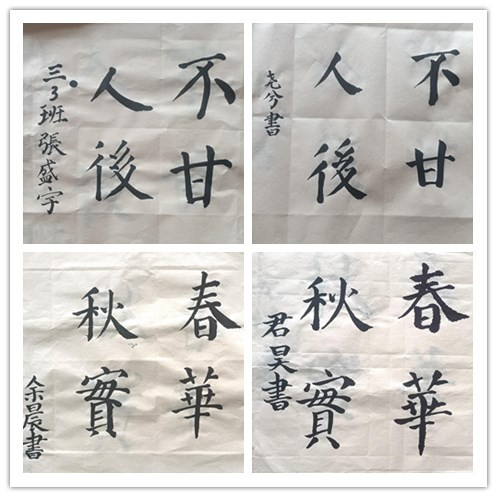 不甘
人後
三3班張盛宇
不甘
人後
尧兮書
春華
秋實
余晨書
春華
秋實
君昊書